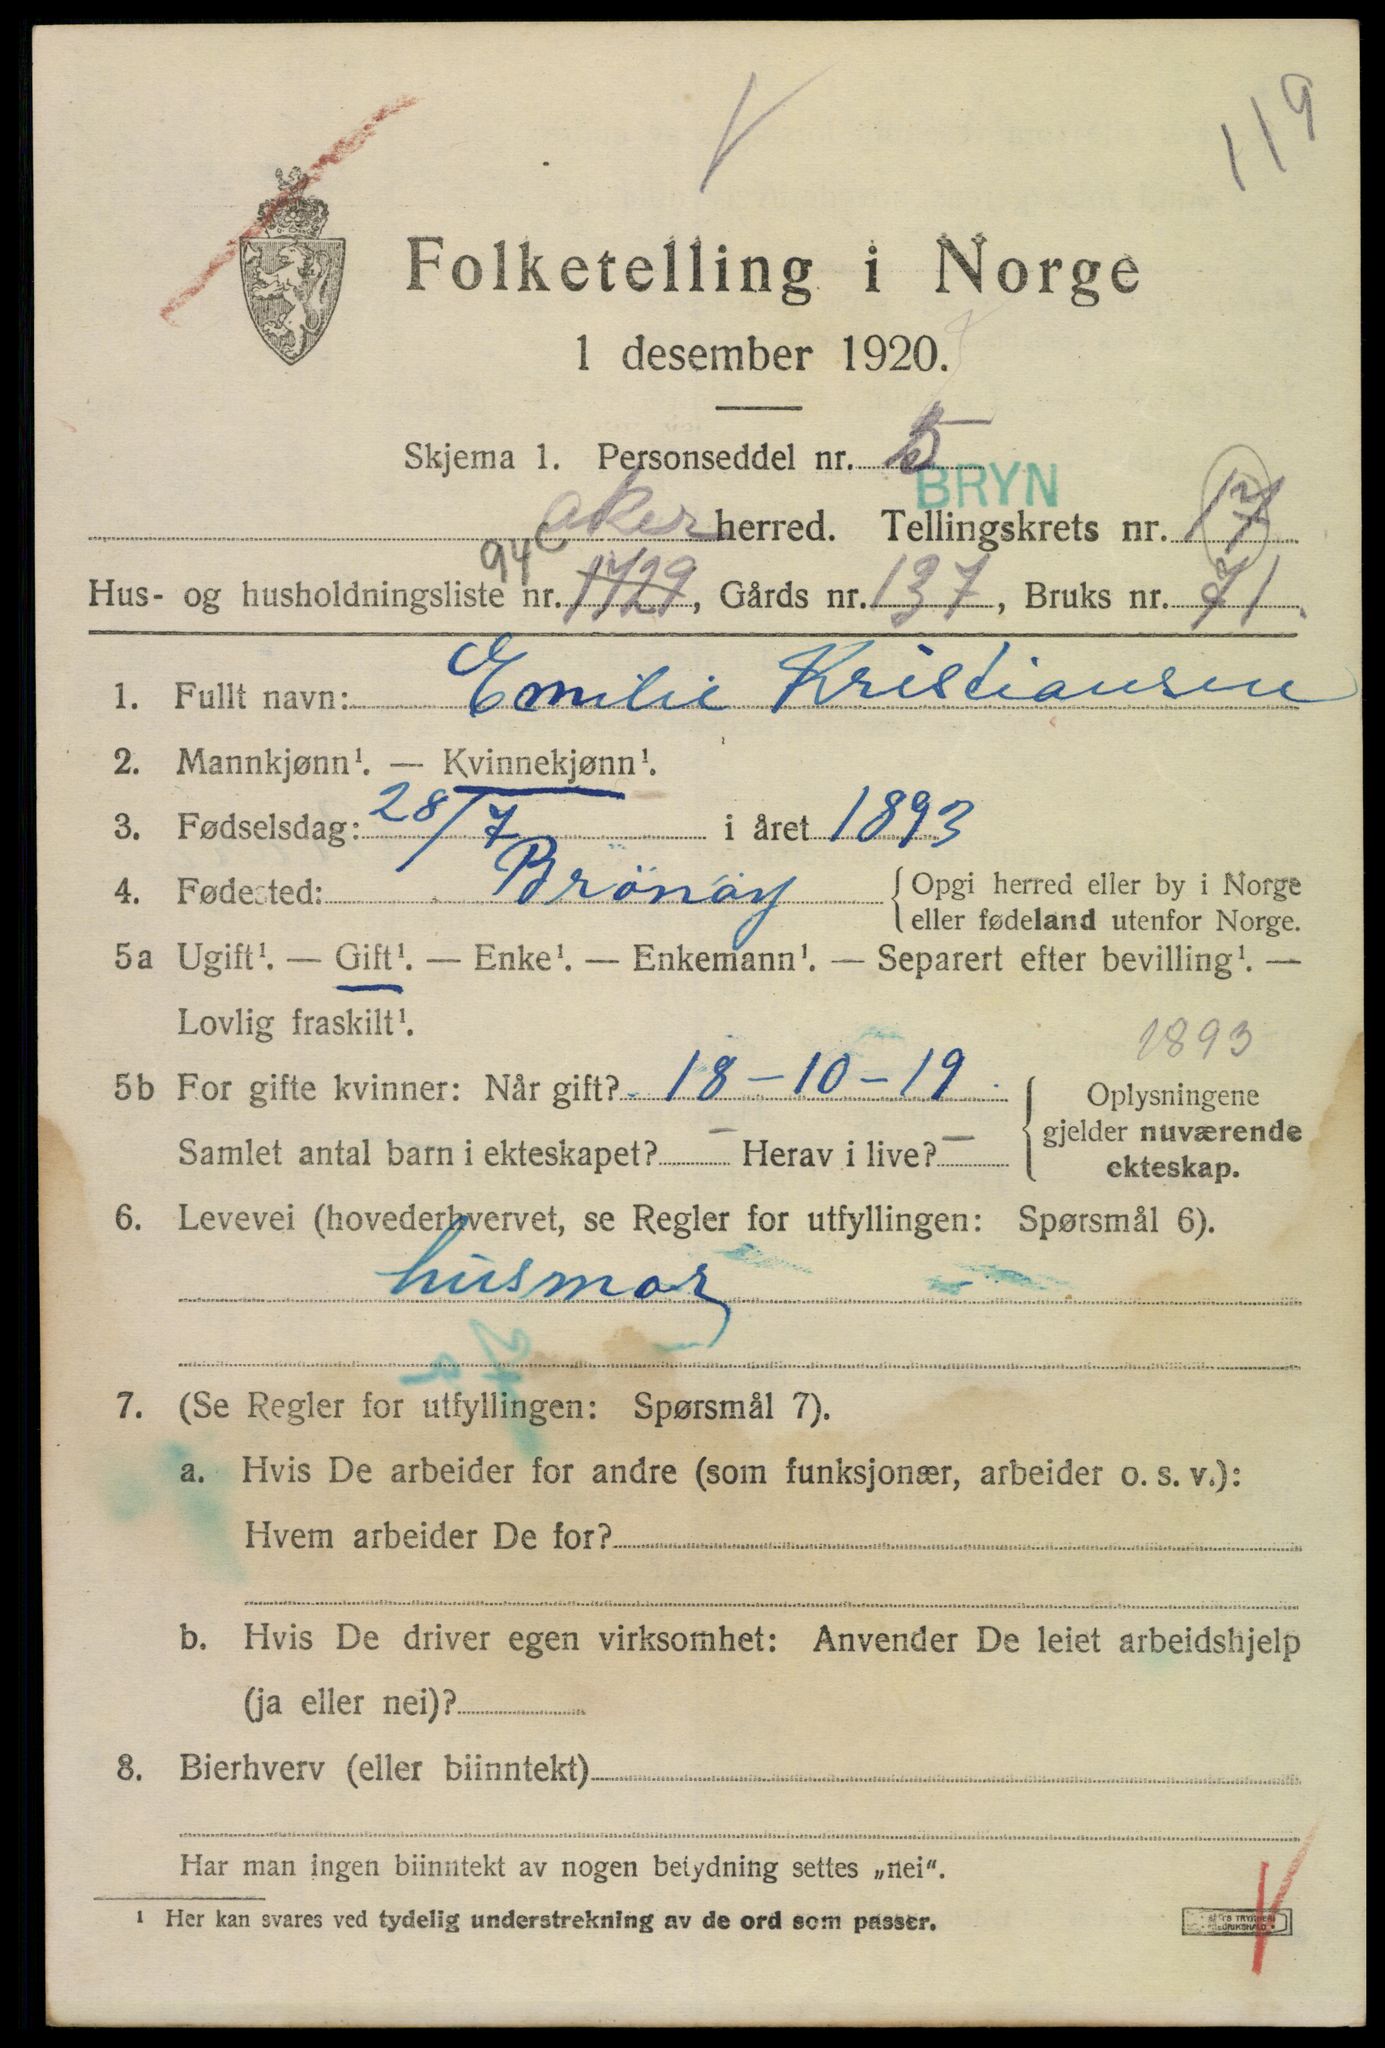 119
Folketelling i Norge
1 desember 1920.
Skjema 1. Personseddel nr. 5
BRYN
aker herred. Tellingskrets nr. 17
94
Hus- og husholdningsliste nr. 1729, Gårds nr. 137, Bruks nr. 71.
1. Fullt navn: Emilie Kristiansen
2. Mannkjønn¹. — Kvinnekjønn¹.
3. Fødselsdag: 28/7 i året 1893
4. Fødested: Brönöy { Opgi herred eller by i Norge
eller fødeland utenfor Norge.
5a Ugift¹. — Gift¹. — Enke¹. — Enkemann¹. — Separert efter bevilling¹. —
Lovlig fraskilt¹.
1893
5b For gifte kvinner: Når gift? 18-10-19 { Oplysningene
gjelder nuværende
Samlet antal barn i ekteskapet? — Herav i live? —
ekteskap.
6. Levevei (hovederhvervet, se Regler for utfyllingen: Spørsmål 6).
husmor
7. (Se Regler for utfyllingen: Spørsmål 7).
a. Hvis De arbeider for andre (som funksjonær, arbeider o. s. v.):
Hvem arbeider De for?
b. Hvis De driver egen virksomhet: Anvender De leiet arbeidshjelp
(ja eller nei)?
8. Bierhverv (eller biinntekt)
Har man ingen biinntekt av nogen betydning settes „nei“.
¹ Her kan svares ved tydelig understrekning av de ord som passer.